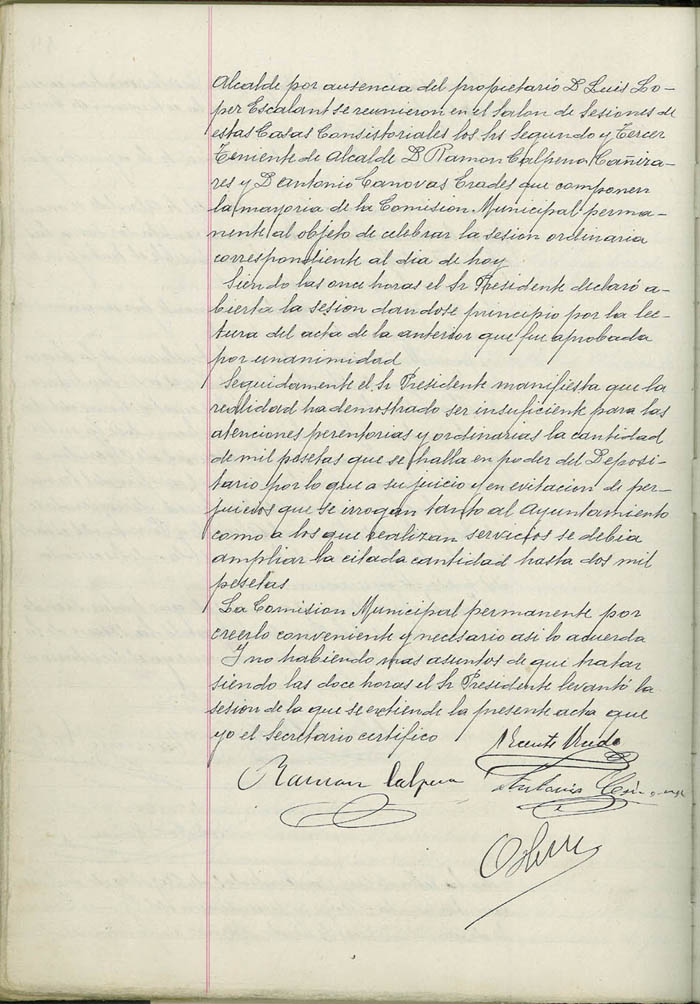 Alcalde por ausencia del propietario D Luis Lo-
per Escalant se reunieron en el Salon de Sesiones de
estas Casas Consistoriales los Srs Segundo y Tercer
Teniente de Alcalde D Ramon Calpena Cañiza-
res y D Antonio Canovas Erades que componen
la mayoria de la Comision Municipal perma-
nente al objeto de celebrar la sesion ordinaria
correspondiente al dia de hoy
Siendo las once horas el Sr Presidente declaró a-
bierta la sesion dandose principio por la lec-
tura del acta de la anterior que fue aprobada
por unanimidad
Seguidamente el Sr Presidente manifiesta que la
realidad ha demostrado ser insuficiente para las
atenciones perentorias y ordinarias la cantidad
de mil pesetas que se halla en poder del Deposi-
tario por lo que a su juicio y en evitacion de per-
juicios que se irrogan tanto al Ayuntamiento
como a los que realizan servicios se debia
ampliar la citada cantidad hasta dos mil
pesetas
La Comision Municipal permanente por
creerlo conveniente y necesario asi lo acuerda
Y no habiendo mas asuntos de que tratar
siendo las doce horas el Sr Presidente levantó la
sesion de la que se extiende la presente acta que
yo el Secretario certifico
Vicente
Ramon Calpena
Antonio Canovas